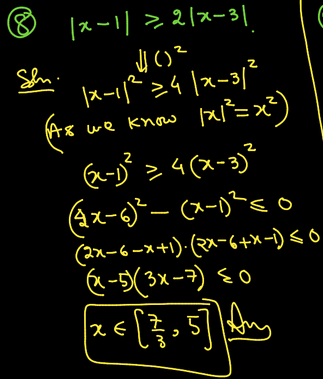 ⑧ |x-1| ≥ 2|x-3|.
⇓()²
Soln. |x-1|² ≥ 4 |x-3|²
(As we know |x|² = x²)
(x-1)² ≥ 4(x-3)²
(2x-6)² - (x-1)² ≤ 0
(2x-6-x+1).(2x-6+x-1) ≤ 0
(x-5)(3x-7) ≤ 0
x ∈ [7/3, 5] Ans